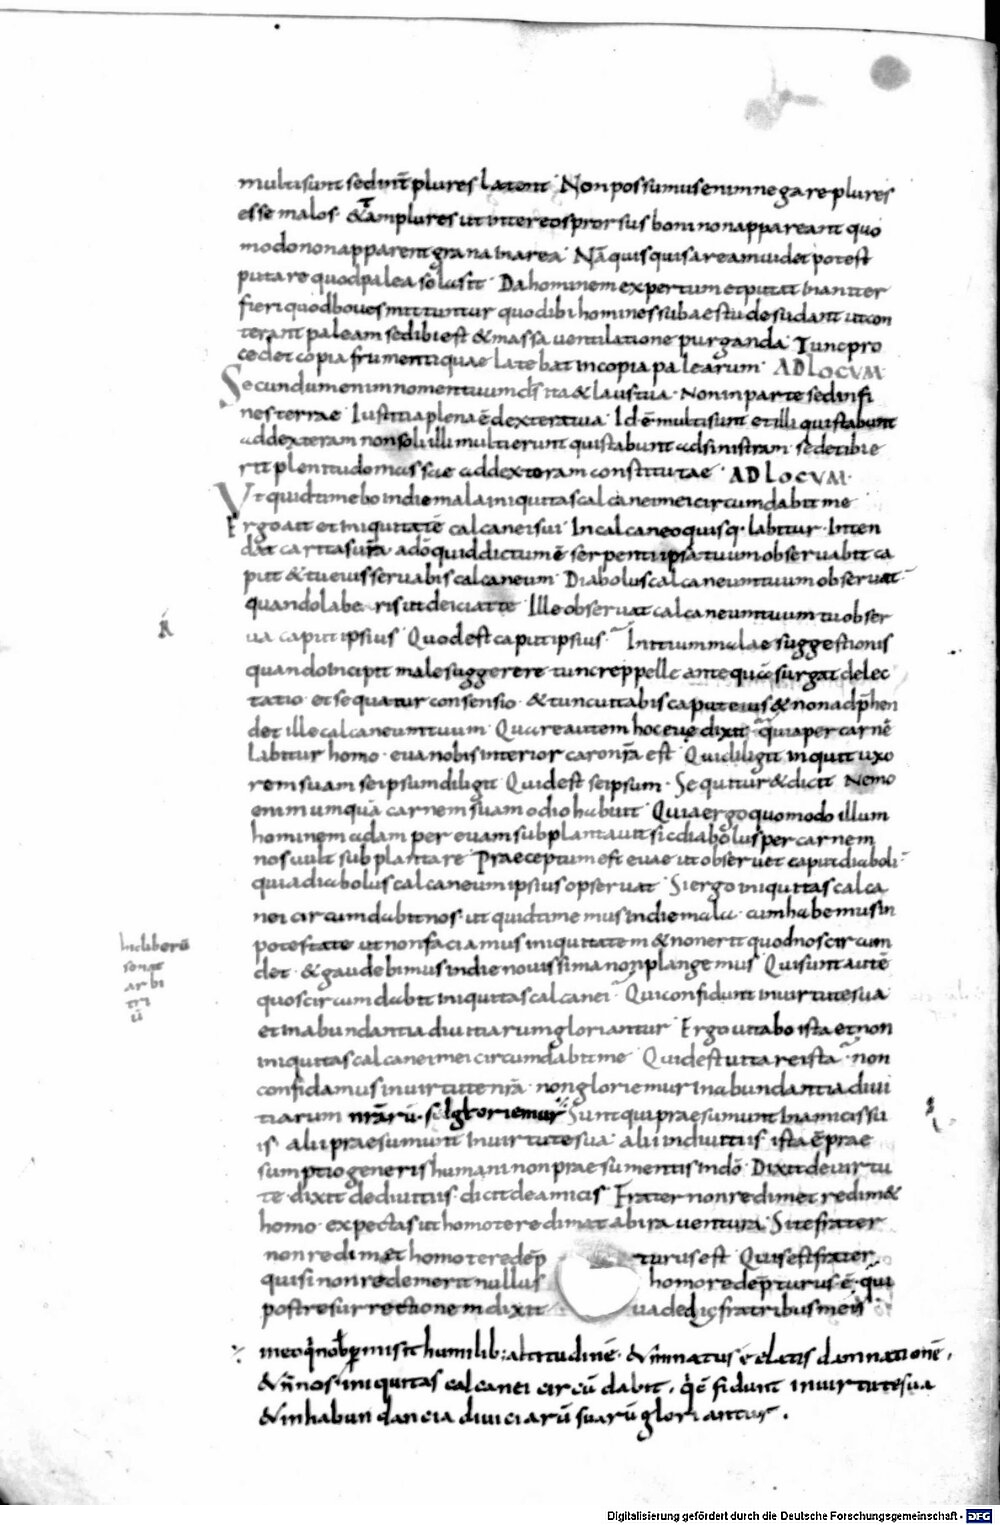 multi sunt sed int̄ plures latent Non possumus enim negare plures
esse malos · & tam plures ut inter eos prorsus boni non appareant quo
modo non apparent grana in area · Nā quisquis aream uidet potest
putare quod palea sola sit · Da hominem expertum et putat inaniter
fieri quod boues mittuntur quod ibi homines sub aestu desudant ut con
terant paleam sed ibi est & massa uentilatione purganda · Tunc pro
cedet copia frumenti quae latebat in copia palearum · AD LOCVM
Secundum enim nomen tuum dš ita & laus tua · Non in parte sed in fi
nes terrae Iustitia plena ē dextera tua Id ē multi sunt et illi qui stabunt
ad dexteram non soli illi multi erunt qui stabunt ad sinistram · sed et ibi e
rit plenitudo massae ad dexteram constitutae · AD LOCVM ·
Vt quid timebo in die mala iniquitas calcanei mei circumdabit me
Ergo ait et iniquitatē calcanei sui In calcaneo quisq· labitur · Inten
dat caritas ur̄a adō quid dictum ē serpenti ipsa tuum obseruabit ca
put & tu eius seruabis calcaneum Diabolus calcaneum tuum obseruat
quando laberis ut deiciat te Ille obseruat calcaneum tuum tu obser
ua caput ipsius Quod est caput ipsius · Initium malae suggestionis
quando incipit male suggerere tunc reppelle ante quā surgat delec
tatio et sequatur consensio · & tunc uitabis caput eius & non adp̄hen
det ille calcaneum tuum Quare autem hoc eue dixit quia per carnē
labitur homo · eua nobis interior caro nr̄a est Qui diligit inquit uxo
rem suam seipsum diligit Quid est seipsum · Sequitur & dicit Nemo
enim umquā carnem suam odio habuit Quia ergo quomodo illum
hominem adam per euam subplantauit sic diabolus per carnem
nos uult subplantare Praeceptum est euae ut obseruet caput diaboli
quia diabolus calcaneum ipsius opseruat Si ergo iniquitas calca
nei circumdabit nos · ut quid timemus in die mala · cum habemus in
potestate ut non faciamus iniquitatem & non erit quod nos circum
det · & gaudebimus in die nouissima non plangemus Qui sunt autē
quos circumdabit iniquitas calcanei Qui confidunt in uirtute sua
et in abundantia diuitiarum gloriantur Ergo uitabo ista et non
iniquitas calcanei mei circumdabit me Quid est uitare ista non
confidamus in uirtute nr̄a · non gloriemur in abundantia diui
tiarum nr̄arū · gloriemur Sunt qui praesumunt in amicis su
is alii praesumunt in uirtute sua alii in diuitiis ista ē prae
sumptio generis humani non praesumentis in dō Dixit de uirtu
te dixit de diuitiis dicit de amicis Frater non redimet redim&
homo · expectas ut homo te redimat ab ira uentura Si te frater
non redimet homo te redēp turus est Quis est frater
qui si non redemerit nullus homo redēpturus ē · qui
post resurrectionem dixit ua dedic fratribus meis
In ea q̄ nob̄ p̄misit humilib; altitudinē · & minatus ē elatis damnationē ·
& n̄ nos iniquitas calcanei circūdabit · q̄ cfidunt in uirtute sua
& in habundancia diuiciarū suarū gloriantur ·
In liberū
sonat
arbi
tri
ū